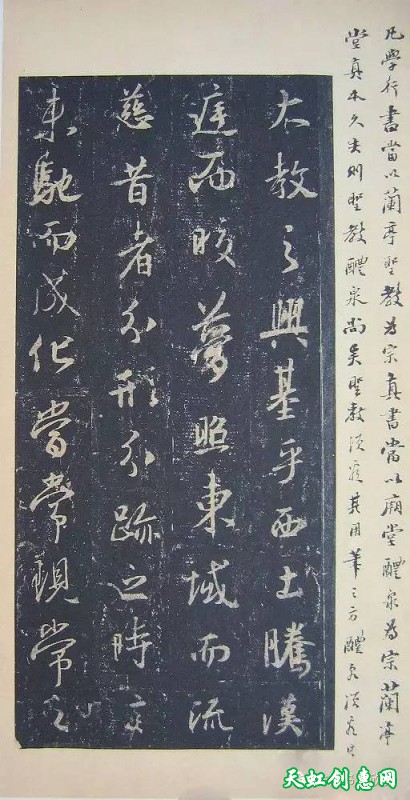 凡學行書當以蘭亭聖教為宗真書當以廟堂醴泉為宗蘭亭
堂真本久失則聖教醴泉尚矣聖教須窺其用筆之方醴泉須
大教之興基乎西土騰漢
庭而皎夢照東域而流
慈昔者分形分跡之時言
未馳而成化當常現常之
天虹创惠网